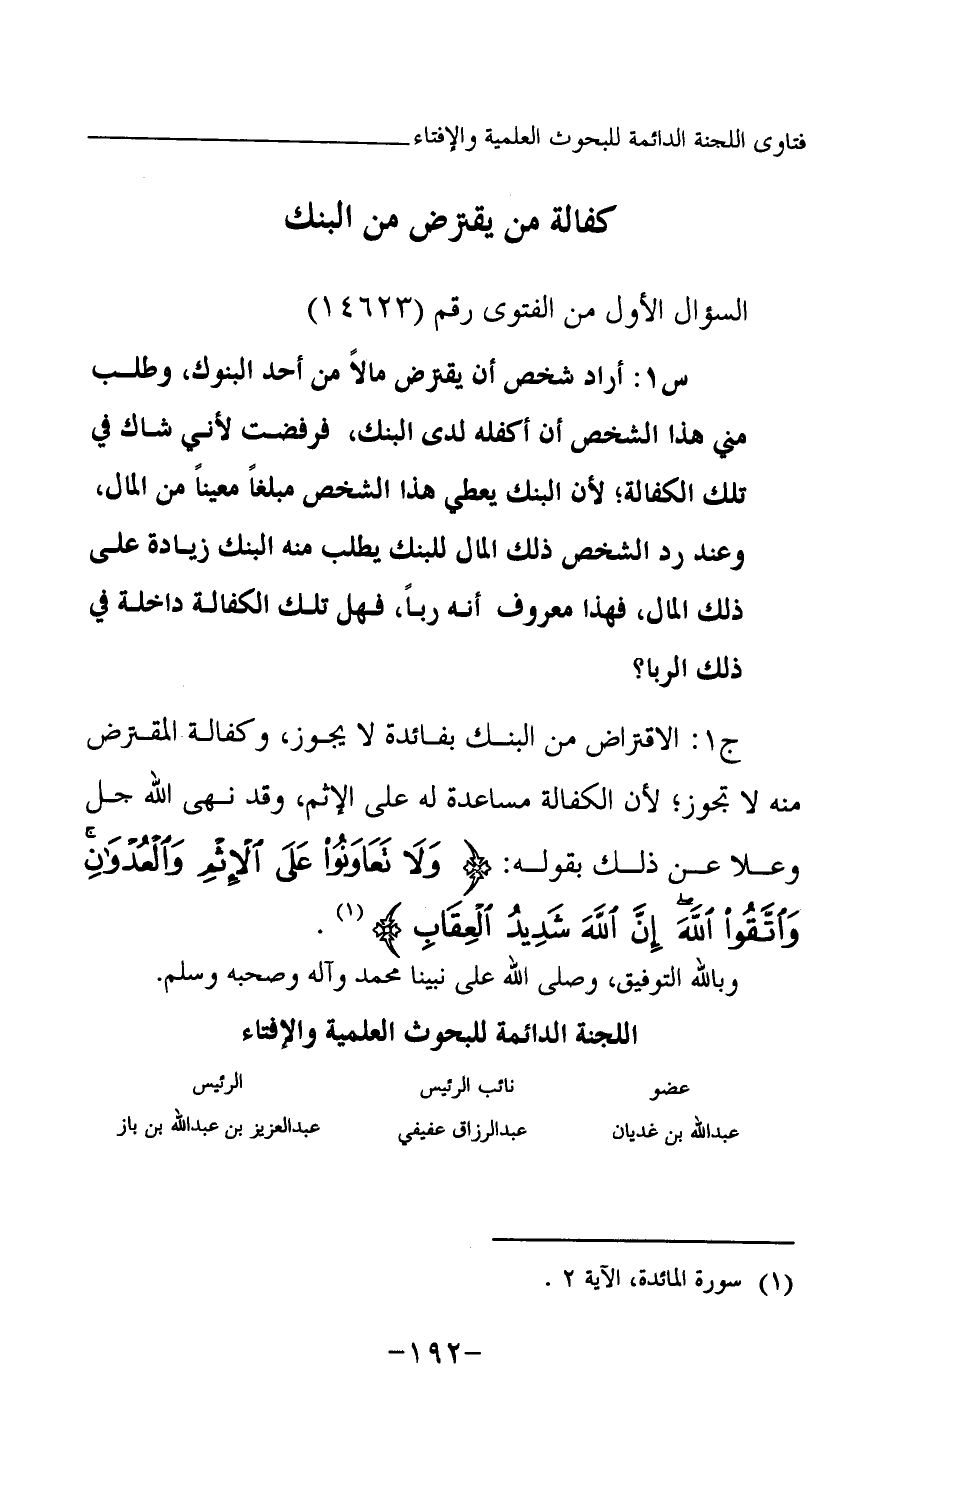 فتاوى اللجنة الدائمة للبحوث العلمية والإفتاء
كفالة من يقترض من البنك
السؤال الأول من الفتوى رقم (١٤٦٢٣)
س١: أراد شخص أن يقترض مالاً من أحد البنوك، وطلب
مني هذا الشخص أن أكفله لدى البنك، فرفضت لأني شاك في
تلك الكفالة؛ لأن البنك يعطي هذا الشخص مبلغاً معيناً من المال،
وعند رد الشخص ذلك المال للبنك يطلب منه البنك زيادة على
ذلك المال، فهذا معروف أنه رباً، فهل تلك الكفالة داخلة في
ذلك الربا؟
ج١: الاقتراض من البنك بفائدة لا يجوز، وكفالة المقترض
منه لا تجوز؛ لأن الكفالة مساعدة له على الإثم، وقد نهى الله جل
وعلا عن ذلك بقوله: ﴿ وَلَا تَعَاوَنُوا۟ عَلَى ٱلْإِثْمِ وَٱلْعُدْوَٰنِ ۚ
وَٱتَّقُوا۟ ٱللَّهَ ۖ إِنَّ ٱللَّهَ شَدِيدُ ٱلْعِقَابِ ﴾ (١) .
وبالله التوفيق، وصلى الله على نبينا محمد وآله وصحبه وسلم.
اللجنة الدائمة للبحوث العلمية والإفتاء
عضو نائب الرئيس الرئيس
عبدالله بن غديان عبدالرزاق عفيفي عبدالعزيز بن عبدالله بن باز
(١) سورة المائدة، الآية ٢ .
-١٩٢-